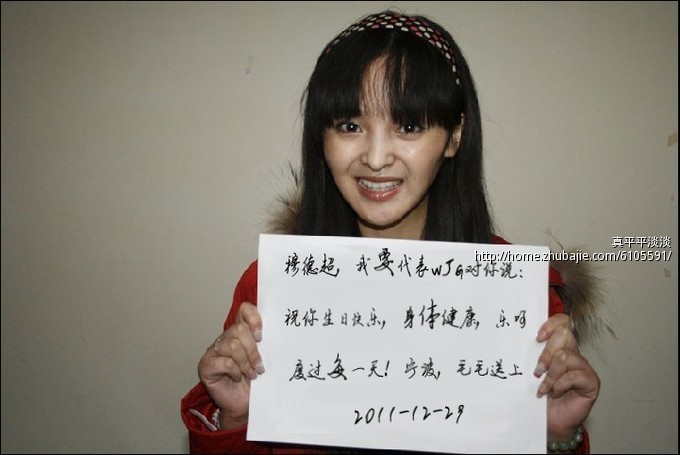 穆德超，我要代表WJG对你说：
祝你生日快乐，身体健康，乐呵
度过每一天！宁波，毛毛送上
2011-12-29
真平平淡淡
http://home.zhubajie.com/6105591/